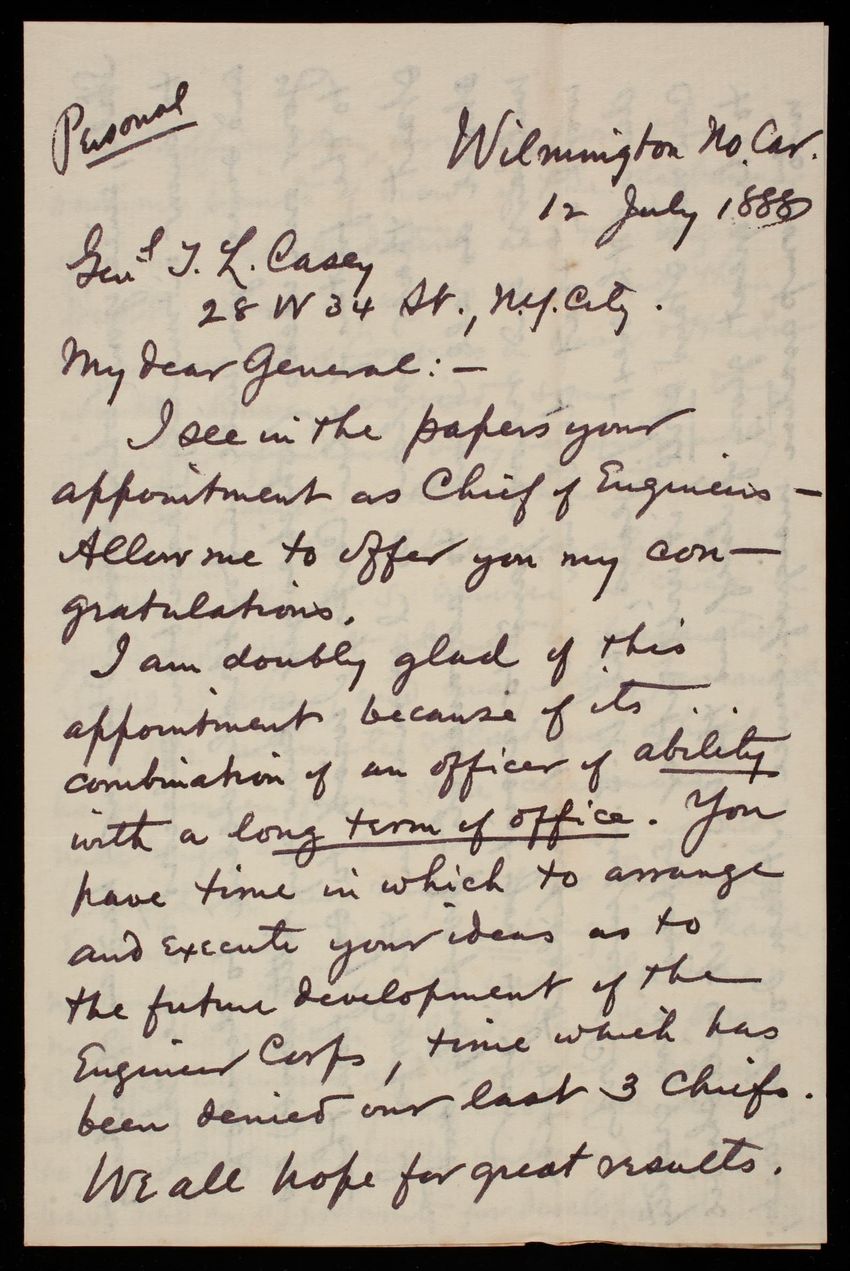 Personal
Wilmington No. Car.
12 July 1888
Genl T. L. Casey
28 W 34 St., N.Y. City.
My dear General: —
I see in the papers your
appointment as Chief of Engineers —
Allow me to offer you my con—
gratulations.
I am doubly glad of this
appointment because of its
combination of an officer of ability
with a long term of office. You
have time in which to arrange
and execute your ideas as to
the future development of the
Engineer Corps, time which has
been denied our last 3 Chiefs.
We all hope for great results.